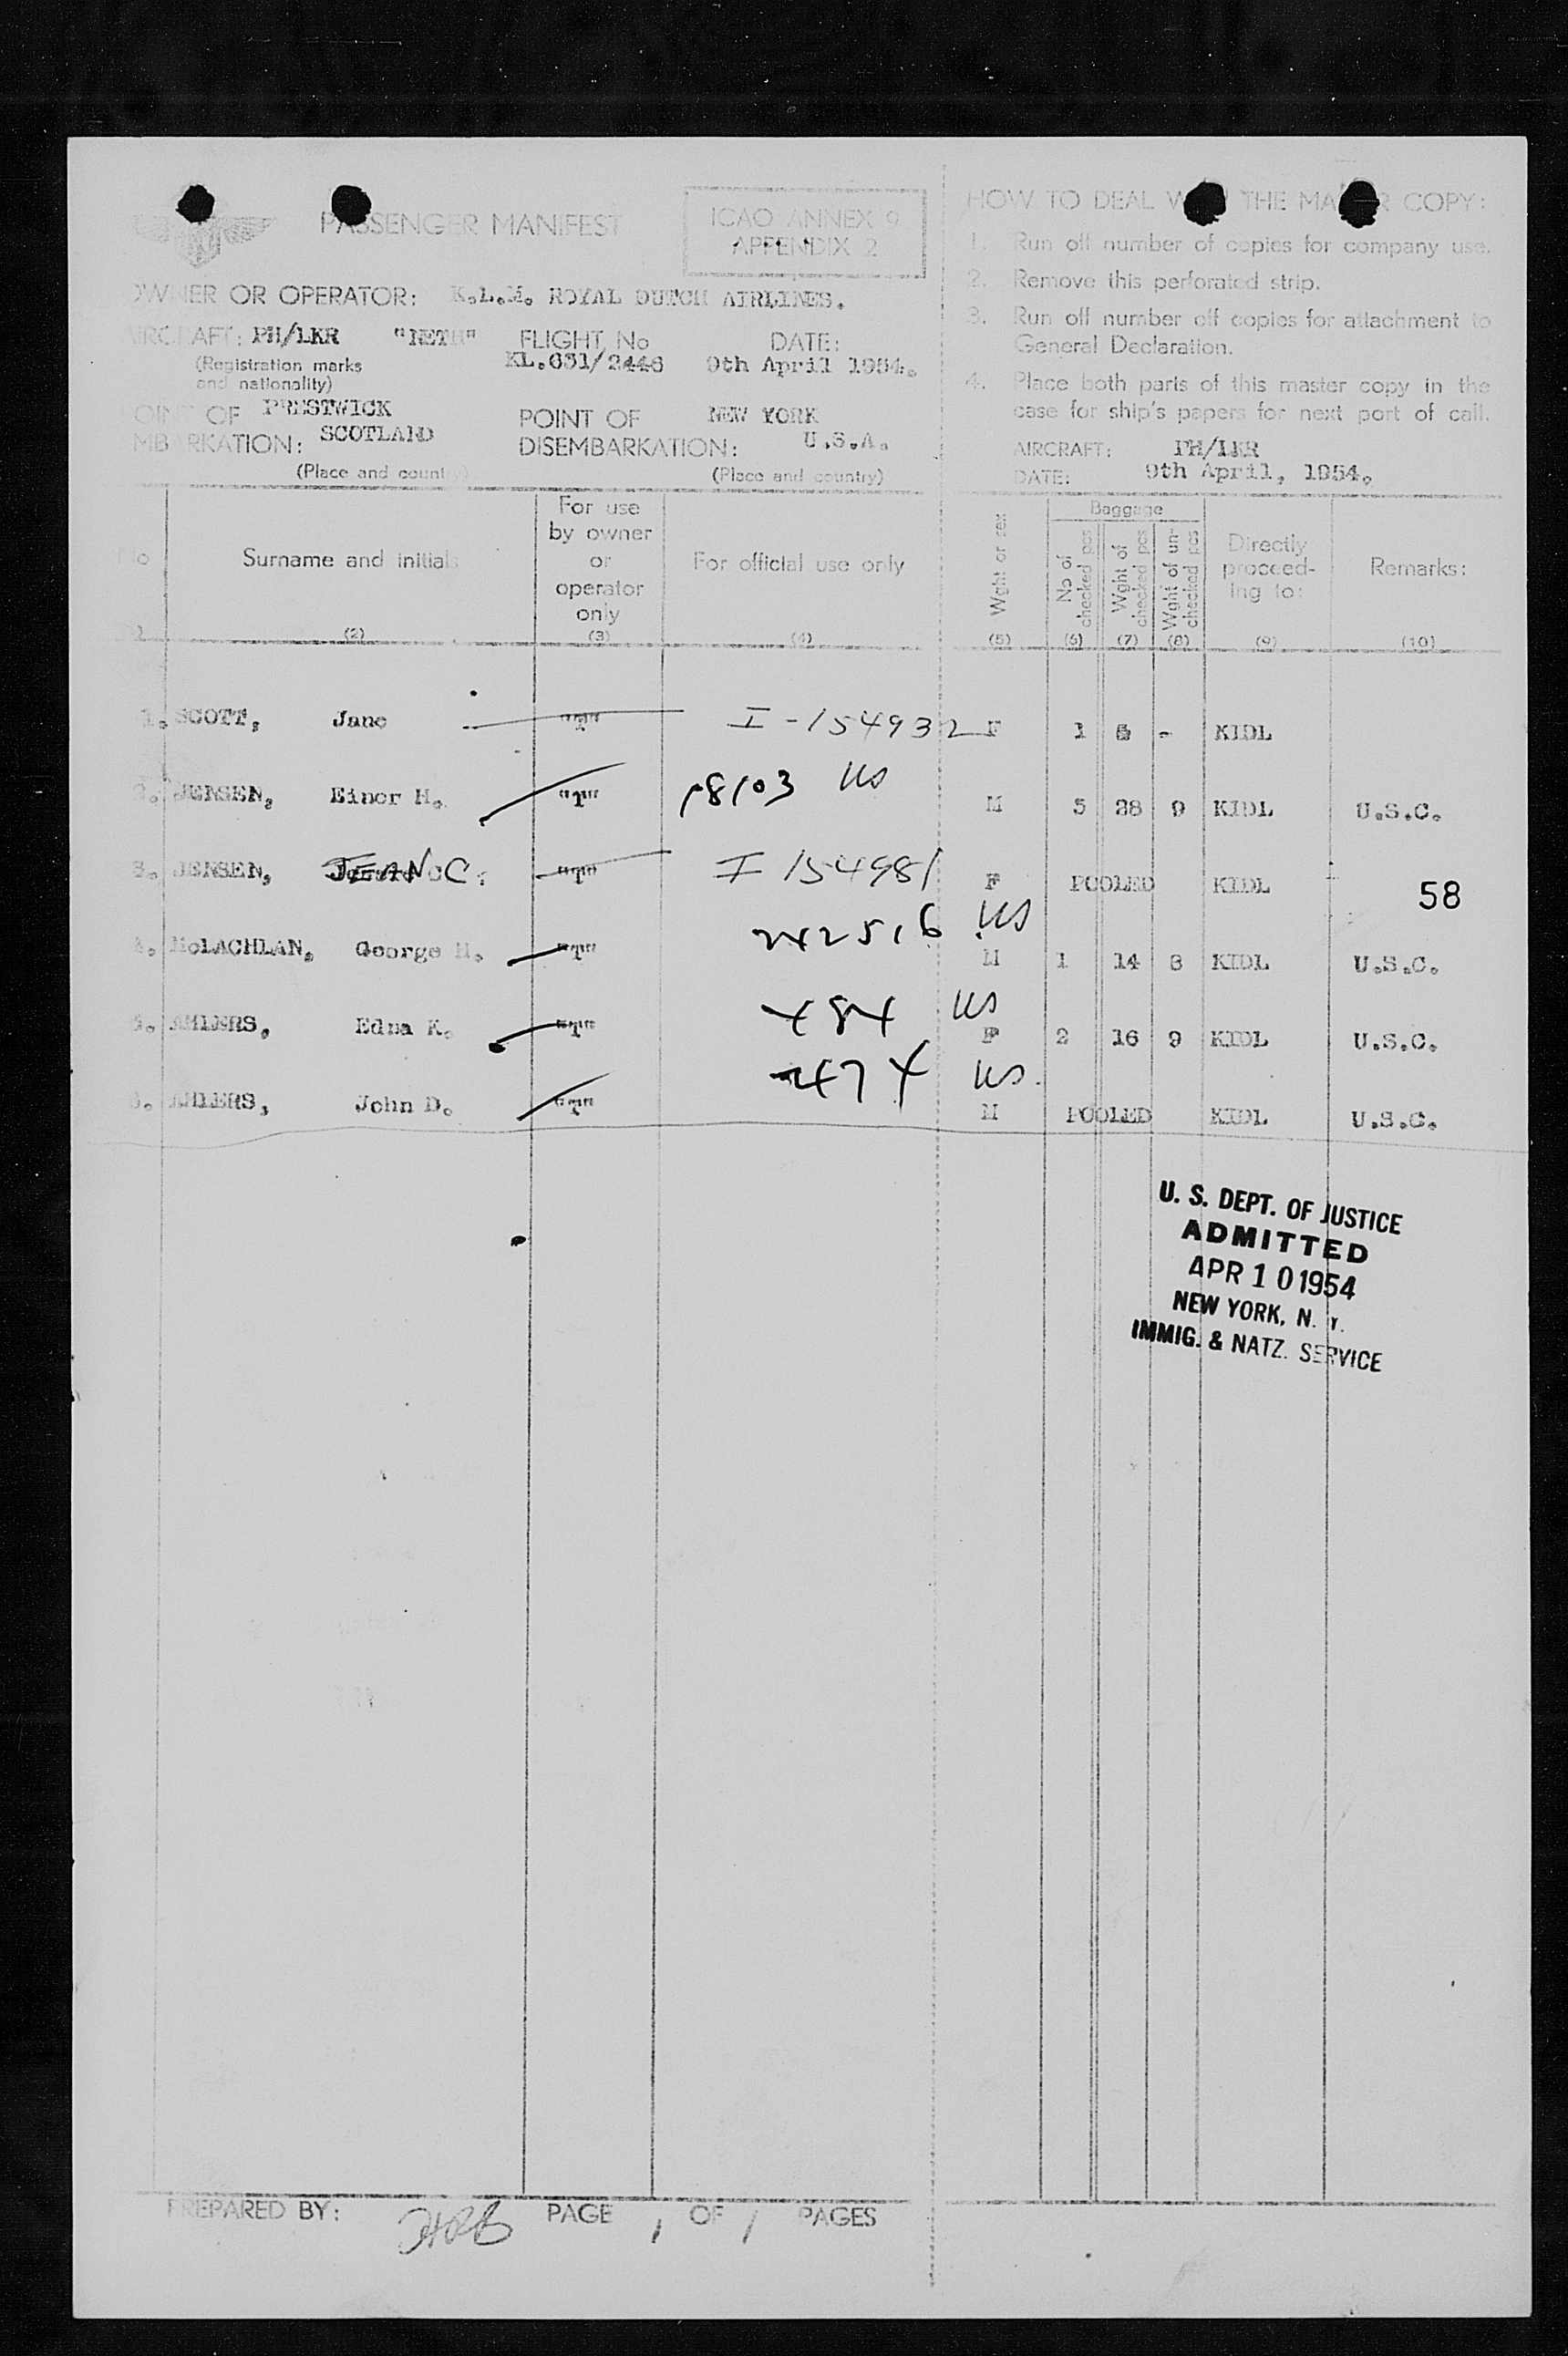 PASSENGER MANIFEST
ICAO ANNEX 9
APPENDIX 2
OWNER OR OPERATOR: K.L.M. ROYAL DUTCH AIRLINES.
AIRCRAFT: PH/LKR "NETH" FLIGHT No DATE:
(Registration marks KL.631/2446 9th April 1954.
and nationality)
POINT OF PRESTWICK POINT OF NEW YORK
EMBARKATION: SCOTLAND DISEMBARKATION: U.S.A.
(Place and country) (Place and country)
HOW TO DEAL WITH THE MASTER COPY:
1. Run off number of copies for company use.
2. Remove this perforated strip.
3. Run off number off copies for attachment to
General Declaration.
4. Place both parts of this master copy in the
case for ship's papers for next port of call.
AIRCRAFT: PH/LKR
DATE: 9th April, 1954.
No Surname and initials For use by owner or operator only For official use only Wght or sex Baggage No of checked pcs Wght of checked pcs Wght of un-checked pcs Directly proceed-ing to: Remarks:
(2) (3) (4) (5) (6) (7) (8) (9) (10)
1. SCOTT, Jane "T" I-154932 F 1 - KIDL
2. JENSEN, Einer H. "T" 18103 US M 5 28 9 KIDL U.S.C.
3. JENSEN, JEAN C. "T" I 154981 F POOLED KIDL 58
4. McLACHLAN, George H. "T" 242516 US M 1 14 8 KIDL U.S.C.
5. AHLERS, Edna K. "T" 484 US F 2 16 9 KIDL U.S.C.
6. AHLERS, John D. "T" 474 US. M POOLED KIDL U.S.C.
U. S. DEPT. OF JUSTICE
ADMITTED
APR 10 1954
NEW YORK, N. Y.
IMMIG. & NATZ. SERVICE
PREPARED BY: PAGE 1 OF 1 PAGES